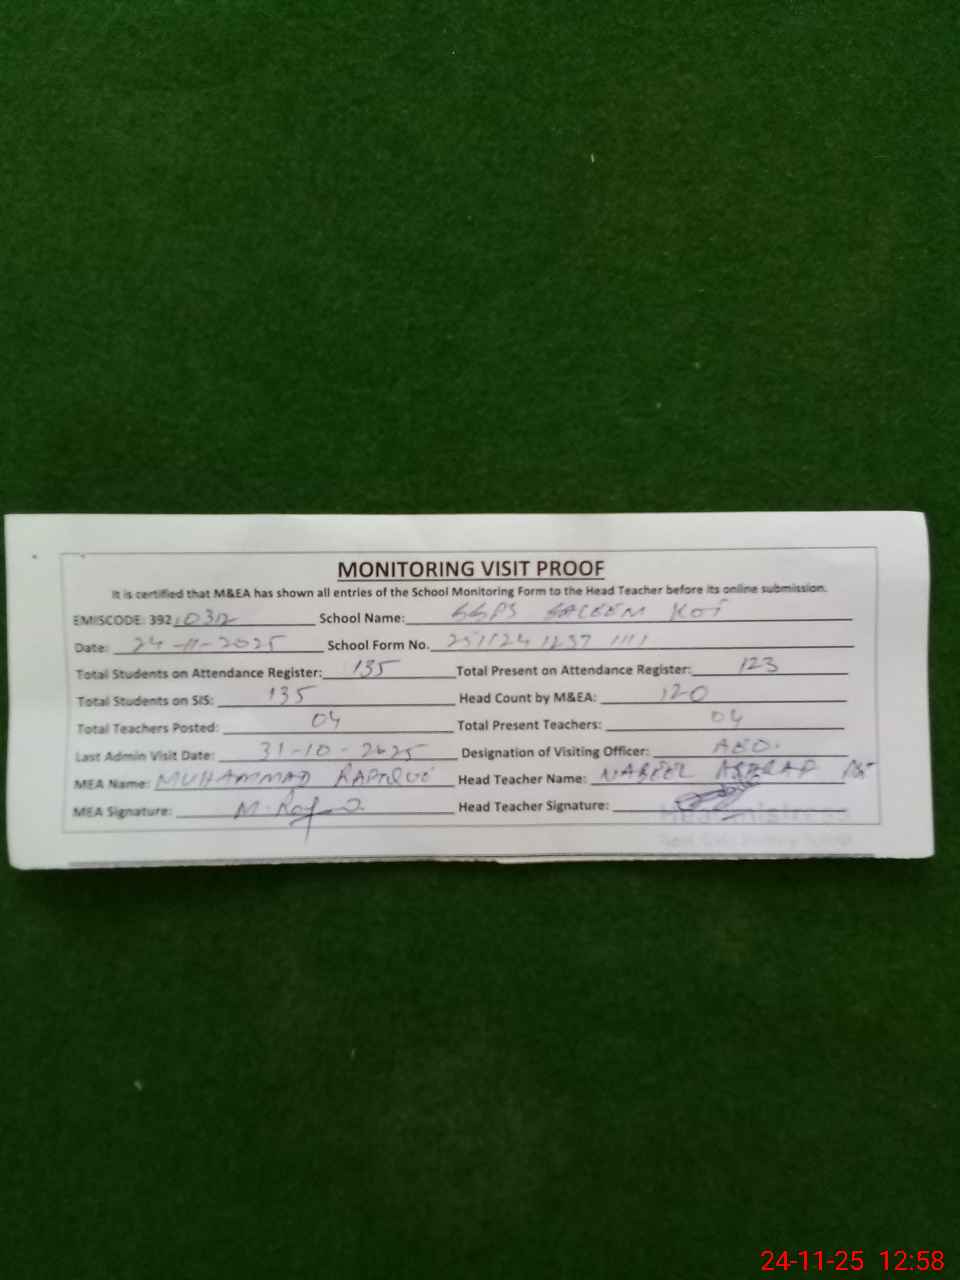 MONITORING VISIT PROOF
It is certified that M&EA has shown all entries of the School Monitoring Form to the Head Teacher before its online submission.
EMISCODE: 392 School Name: SALEEM KOT
Date: 24-11-2025 School Form No. 251124 1237 1111
Total Students on Attendance Register: 135 Total Present on Attendance Register: 123
Total Students on SIS: 135 Head Count by M&EA: 120
Total Teachers Posted: 04 Total Present Teachers: 04
Last Admin Visit Date: 31-10-2025 Designation of Visiting Officer: AEO.
MEA Name: MUHAMMAD Head Teacher Name: NABEEL ASHRAF
MEA Signature: Head Teacher Signature:
24-11-25 12:58